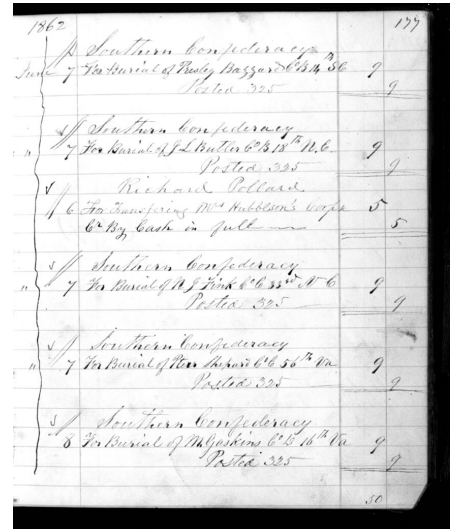 1862 177
Southern Confederacy
June 7 For Burial of Presley Bazzard Co B 14th SC 9
Posted 325 9
Southern Confederacy
" 7 For Burial of J L Butler Co B 18th N.C. 9
Posted 325 9
Richard Pollard
6 For Transfering Mrs Hubbleson's Corps 5
Cr By Cash in full 5
Southern Confederacy
" 7 For Burial of J Fink Co C 33rd N C 9
Posted 325 9
Southern Confederacy
" 7 For Burial of Peter Shepard Co C 56th Va 9
Posted 325 9
Southern Confederacy
8 For Burial of M Gaskins Co 16th Va 9
Posted 325 9
50